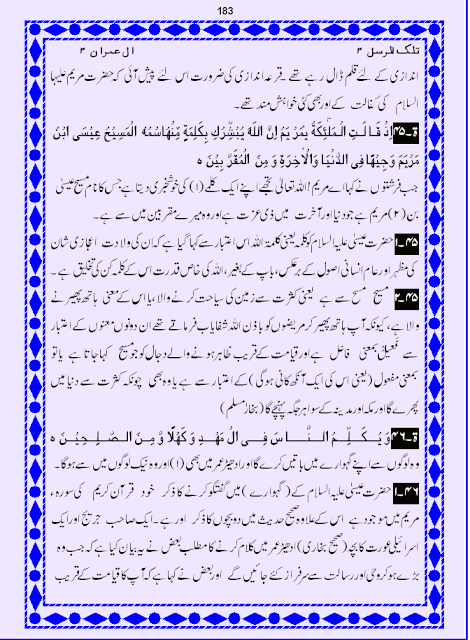 183
تلک الرسل ۳ ال عمران ۳
اندازی کے لئے قلم ڈال رہے تھے۔ قرعہ اندازی کی ضرورت اس لئے پیش آئی کہ حضرت مریم علیہا
السلام کی کفالت کے اور بھی کئی خواہش مند تھے۔
ۃ۔۴۵ اِذْ قَالَتِ الْمَلٰٓئِکَۃُ یٰمَرْیَمُ اِنَّ اللّٰہَ یُبَشِّرُکِ بِکَلِمَۃٍ مِّنْہُ اسْمُہُ الْمَسِیْحُ عِیْسَی ابْنُ
مَرْیَمَ وَجِیْھًا فِی الدُّنْیَا وَالْاٰخِرَۃِ وَ مِنَ الْمُقَرَّبِیْنَ ہ
جب فرشتوں نے کہا اے مریم! اللہ تعالٰی تجھے اپنے ایک کلمے (۱) کی خوشخبری دیتا ہے جس کا نام مسیح عیسیٰ
بن (۲) مریم ہے جو دنیا اور آخرت میں ذی عزت ہے اور وہ میرے مقربین میں سے ہے۔
۴۵۔۱ حضرت عیسیٰ علیہ السلام کو کلمہ یعنی کلمۃ اللہ اس اعتبار سے کہا گیا ہے کہ ان کی ولادت اعجازی شان
کی مظہر اور عام انسانی اصول کے برعکس، باپ کے بغیر، اللہ کی خاص قدرت اس کے کلمہ کن کی تخلیق ہے۔
۴۵۔۲ مسیح مسح سے ہے یعنی کثرت سے زمین کی سیاحت کرنے والا، یا اس کے معنی ہاتھ پھیرنے
والا ہے، کیونکہ آپ ہاتھ پھیر کر مریضوں کو باذن اللہ شفایاب فرماتے تھے ان دونوں معنوں کے اعتبار
سے فعیل بمعنی فاعل ہے اور قیامت کے قریب ظاہر ہونے والے دجال کو جو مسیح کہا جاتا ہے یا تو
بمعنی مفعول (یعنی اس کی ایک آنکھ کانی ہوگی) کے اعتبار سے ہے یا وہ بھی چونکہ کثرت سے دنیا میں
پھرے گا اور مکہ اور مدینہ کے سوا ہر جگہ پہنچے گا (بخاری مسلم)
ۃ۔۴۶ وَ یُکَلِّمُ النَّاسَ فِی الْمَھْدِ وَ کَھْلًا وَّ مِنَ الصّٰلِحِیْنَ ہ
وہ لوگوں سے اپنے گہوارے میں باتیں کرے گا اور ادھیڑ عمر میں بھی (۱) اور وہ نیک لوگوں میں سے ہوگا۔
۴۶۔۱ حضرت عیسیٰ علیہ السلام کے (گہوارے) میں گفتگو کرنے کا ذکر خود قرآن کریم کی سورہ
مریم میں موجود ہے اس کے علاوہ صحیح حدیث میں دو بچوں کا ذکر اور ہے۔ ایک صاحب جریج اور ایک
اسرائیلی عورت کا بچہ (صحیح بخاری) ادھیڑ عمر میں کلام کرنے کا مطلب بعض نے یہ بیان کیا ہے کہ جب وہ
بڑے ہو کر وحی اور رسالت سے سرفراز کئے جائیں گے اور بعض نے کہا ہے کہ آپ کا قیامت کے قریب